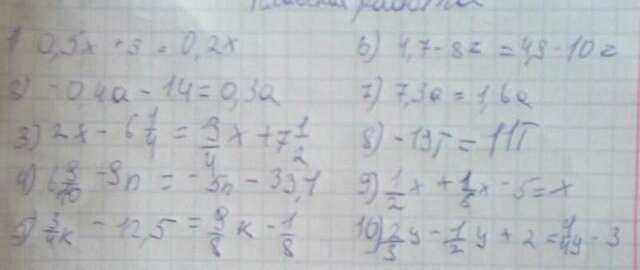 работа
1 0,5x + 3 = 0,2x
2) -0,4a - 14 = 0,3a
3) 2x - 6 1/4 = 9/4 x + 7 1/2
4) 6 9/10 - 9n = -5n - 33,1
5) 3/4 к - 12,5 = 9/8 к - 1/8
6) 4,7 - 8z = 4,9 - 10z
7) 7,3a = 1,6a
8) -19т = 11т
9) 1/2 x + 1/6 x - 5 = x
10) 2/3 y - 1/2 y + 2 = 1/4 y - 3